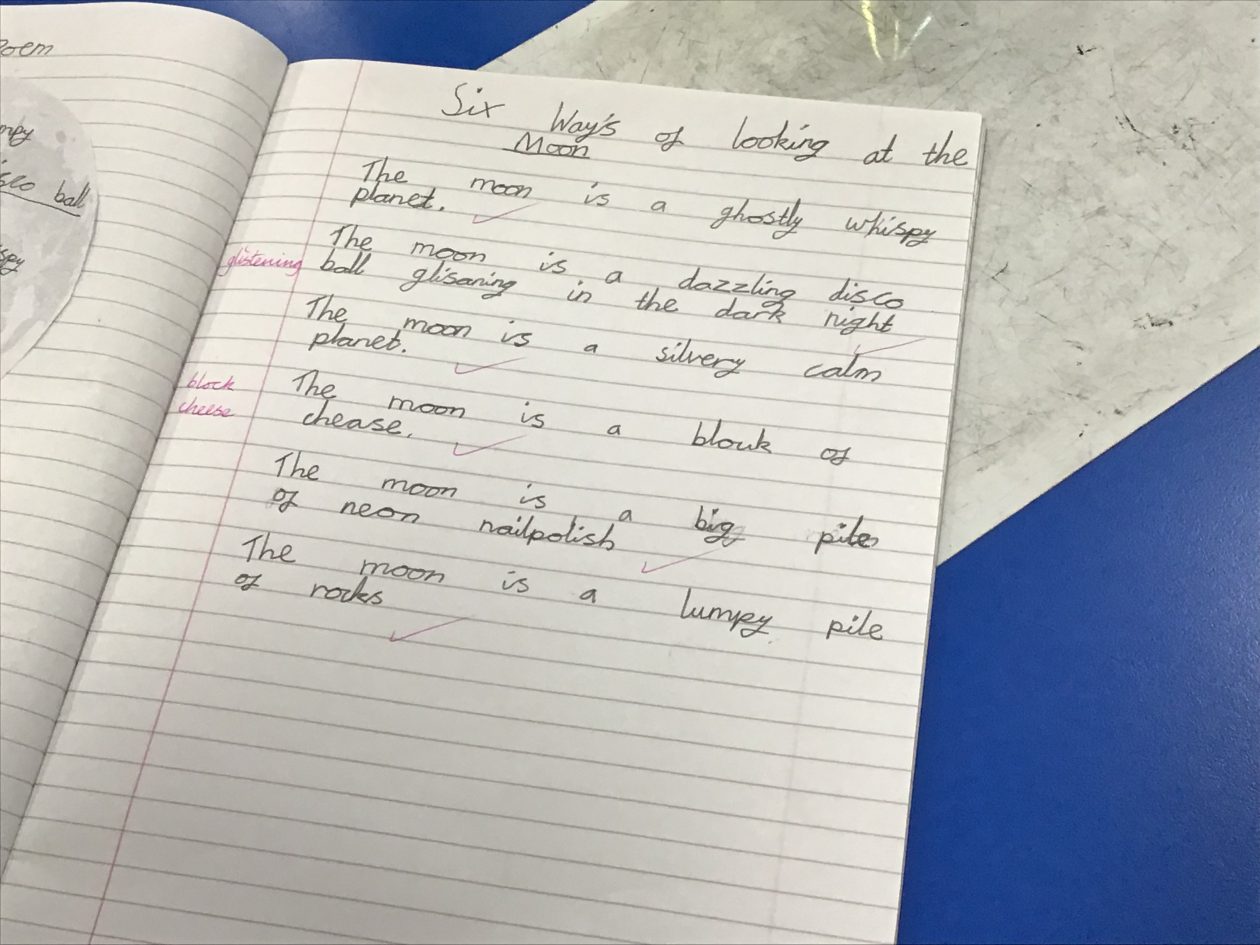 Poem
mpy
sco ball
spy
Six Way's of looking at the
Moon
The moon is a ghostly whispy
planet.
The moon is a dazzling disco
glistening
ball glisaning in the dark night
The moon is a silvery calm
planet.
block
The moon is a blouk of
cheese
chease.
The moon is a big pile
of neon nailpolish
The moon is a lumpy pile
of rocks